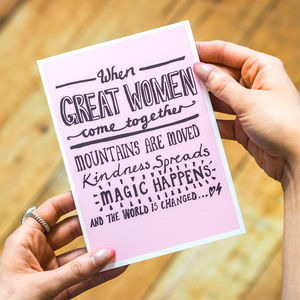 When
GREAT WOMEN
come together
MOUNTAINS ARE MOVED
Kindness Spreads
MAGIC HAPPENS
AND THE WORLD IS CHANGED...